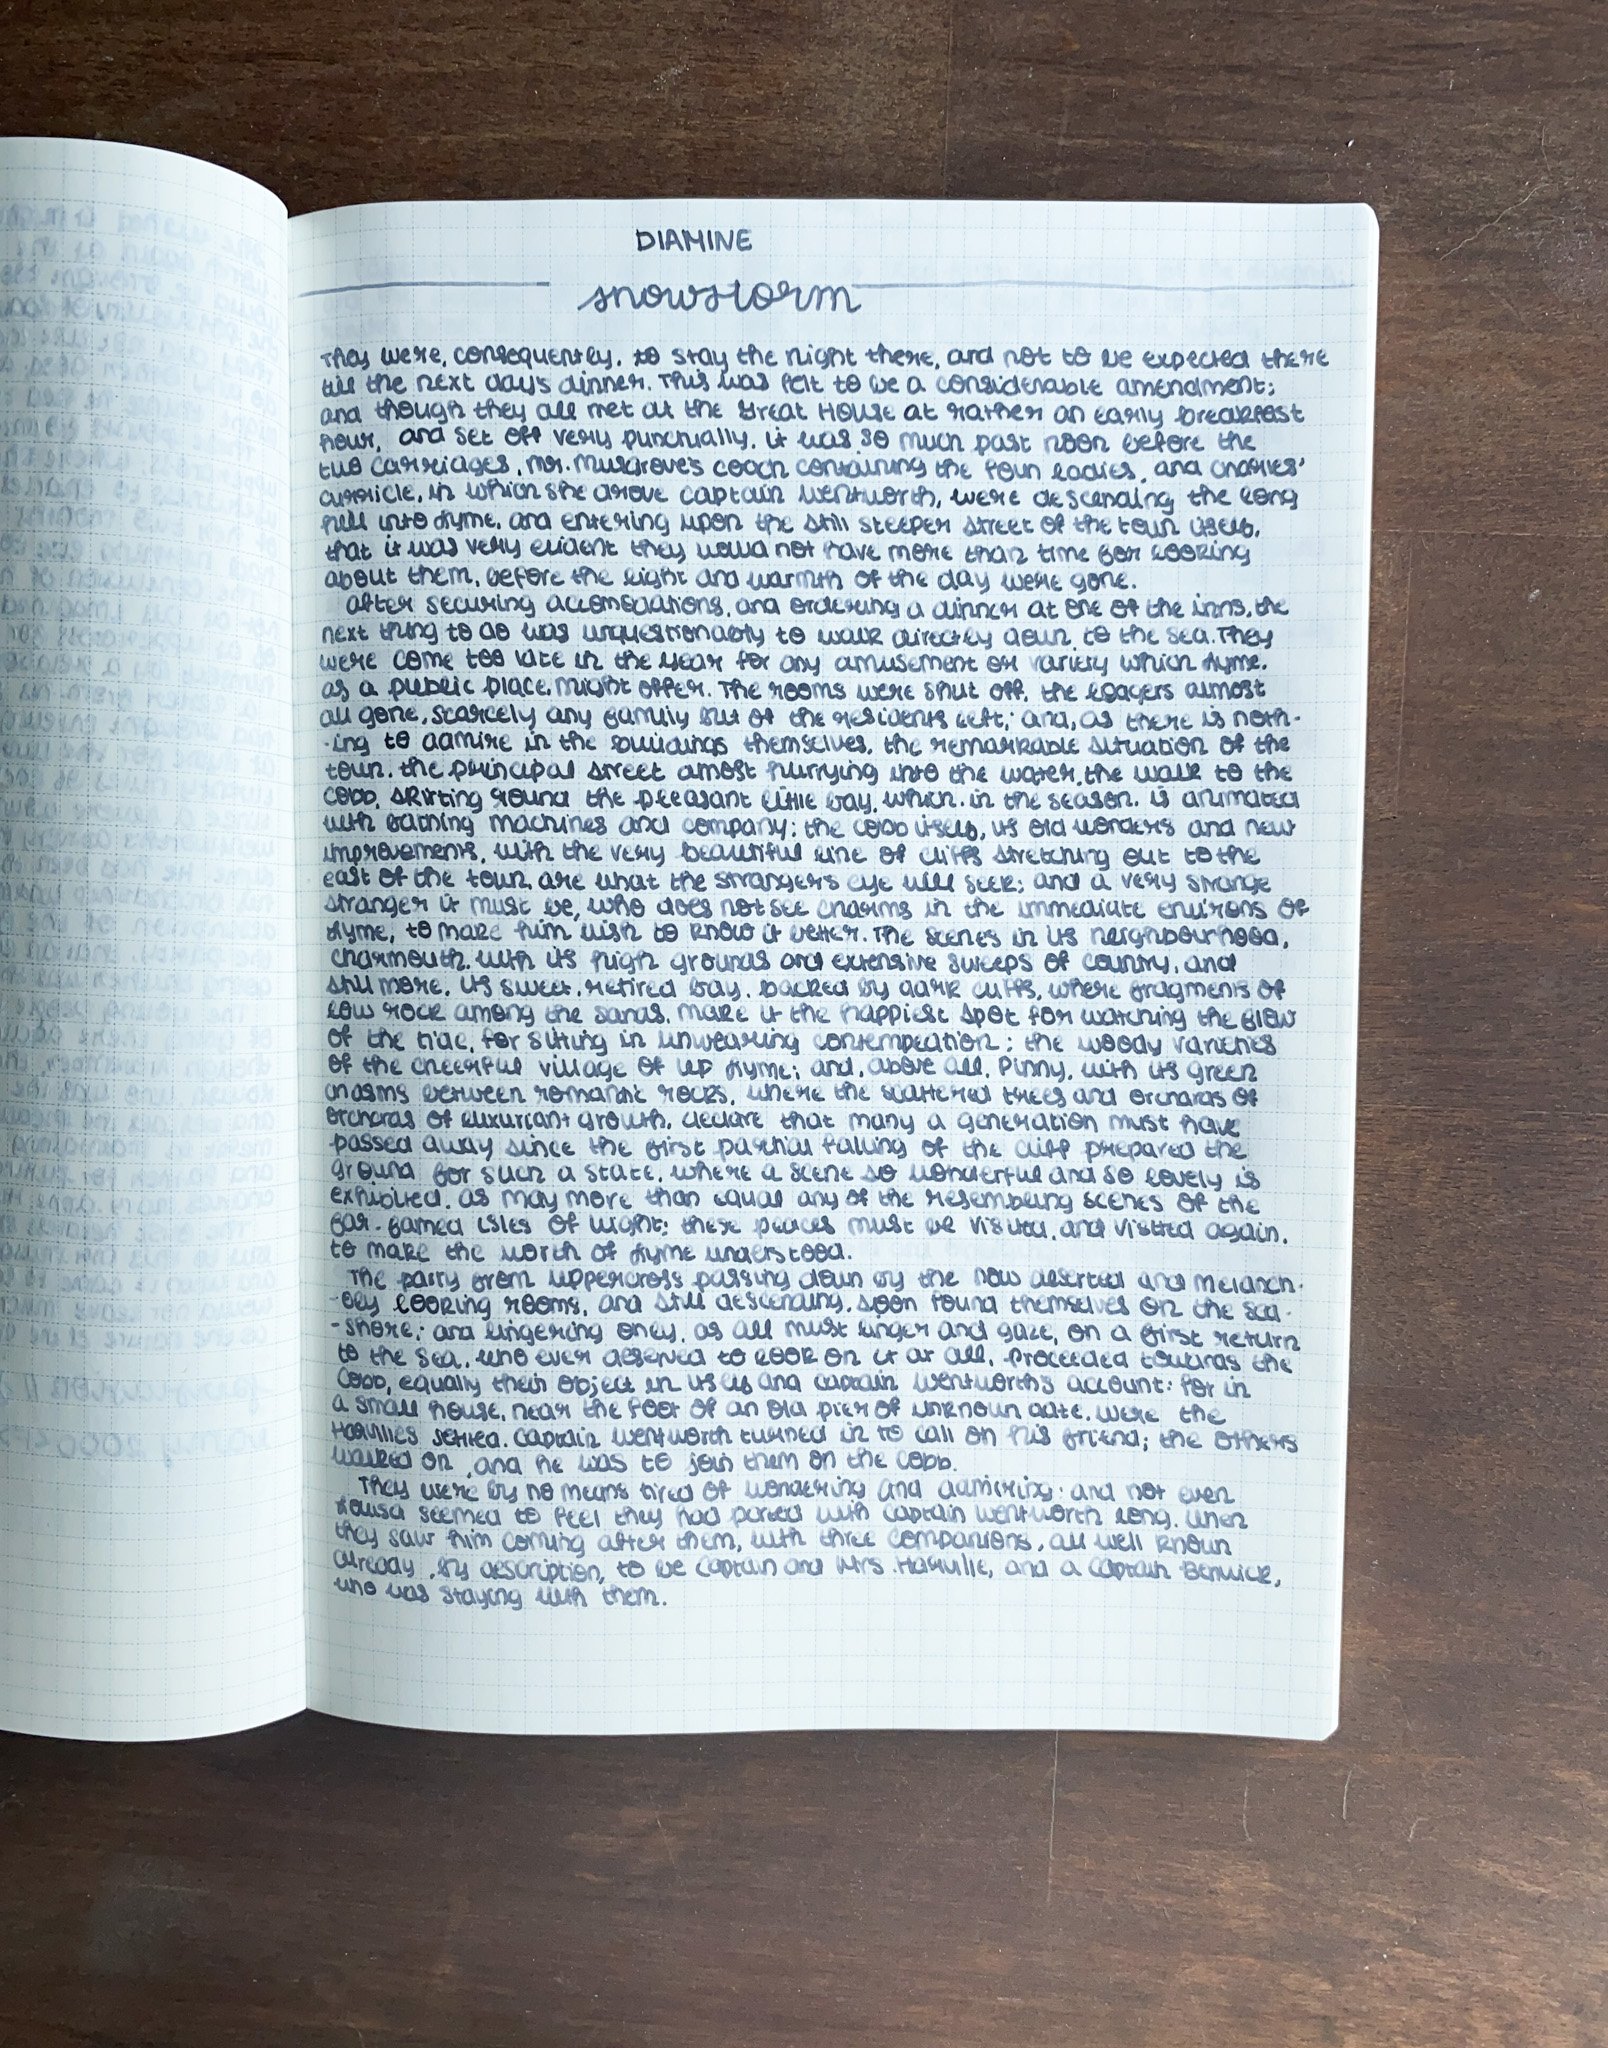 DIAMINE
snowstorm
They were, consequently, to stay the night there, and not to be expected there
till the next day's dinner. This was felt to be a considerable amendment;
and though they all met at the Great House at rather an early breakfast
hour, and set off very punctually, it was so much past noon before the
two carriages, Mr. Musgrove's coach containing the four ladies, and Charles'
curricle, in which she drove Captain Wentworth, were descending the long
hill into Lyme, and entering upon the still steeper street of the town itself,
that it was very evident they would not have more than time for looking
about them, before the light and warmth of the day were gone.
After securing accomodations, and ordering a dinner at one of the inns, the
next thing to do was unquestionably to walk directly down to the sea. They
were come too late in the year for any amusement or variety which Lyme,
as a public place, might offer. The rooms were shut off, the lodgers almost
all gone, scarcely any family but of the residents left; and, as there is noth-
-ing to admire in the buildings themselves, the remarkable situation of the
town, the principal street amost hurrying into the water, the walk to the
Cobb, skirting round the pleasant little bay, which, in the season, is animated
with bathing machines and company; the Cobb itself, its old wonders and new
improvements, with the very beautiful line of cliffs stretching out to the
east of the town, are what the stranger's eye will seek; and a very strange
stranger it must be, who does not see charms in the immediate environs of
Lyme, to make him wish to know it better. The scenes in its neighbourhood,
Charmouth, with its high grounds and extensive sweeps of country, and
still more, its sweet, retired bay, backed by dark cliffs, where fragments of
low rock among the sands, make it the happiest spot for watching the flow
of the tide, for sitting in unwearing contemplation; the woody varieties
of the cheerful village of Up Lyme; and, above all, Pinny, with its green
chasms between romantic rocks, where the scattered trees and orchards of
orchards of luxuriant growth, declare that many a generation must have
passed away since the first partial falling of the cliff prepared the
ground for such a state, where a scene so wonderful and so lovely is
exhibited, as may more than equal any of the resembling scenes of the
far-famed Isles of Wight: these places must be visited, and visited again,
to make the worth of Lyme understood.
The party from Uppercross passing down by the now deserted and melanch-
-oly looking rooms, and still descending, soon found themselves on the sea-
-shore; and lingering only, as all must linger and gaze, on a first return
to the sea, who ever deserved to look on it at all, proceeded towards the
Cobb, equally their object in itself and Captain Wentworth's account: for in
a small house, near the foot of an old pier of unknown date, were the
Harvilles settled. Captain Wentworth turned in to call on his friend; the others
walked on, and he was to join them on the Cobb.
They were by no means tired of wondering and admiring; and not even
Louisa seemed to feel they had parted with Captain Wentworth long, when
they saw him coming after them, with three companions, all well known
already, by description, to be Captain and Mrs. Harville, and a Captain Benwick,
who was staying with them.